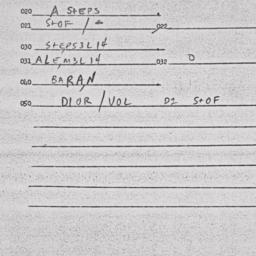 020 A STEPS
021 STOF / 022
030 STEPS3L14
031 ALEM3L14 032 0
040 BARAN
050 DIOR/VOL D1 STOF